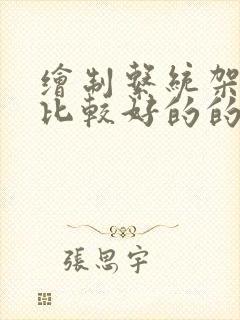 繪制繫統架
比較好的的
張思宇